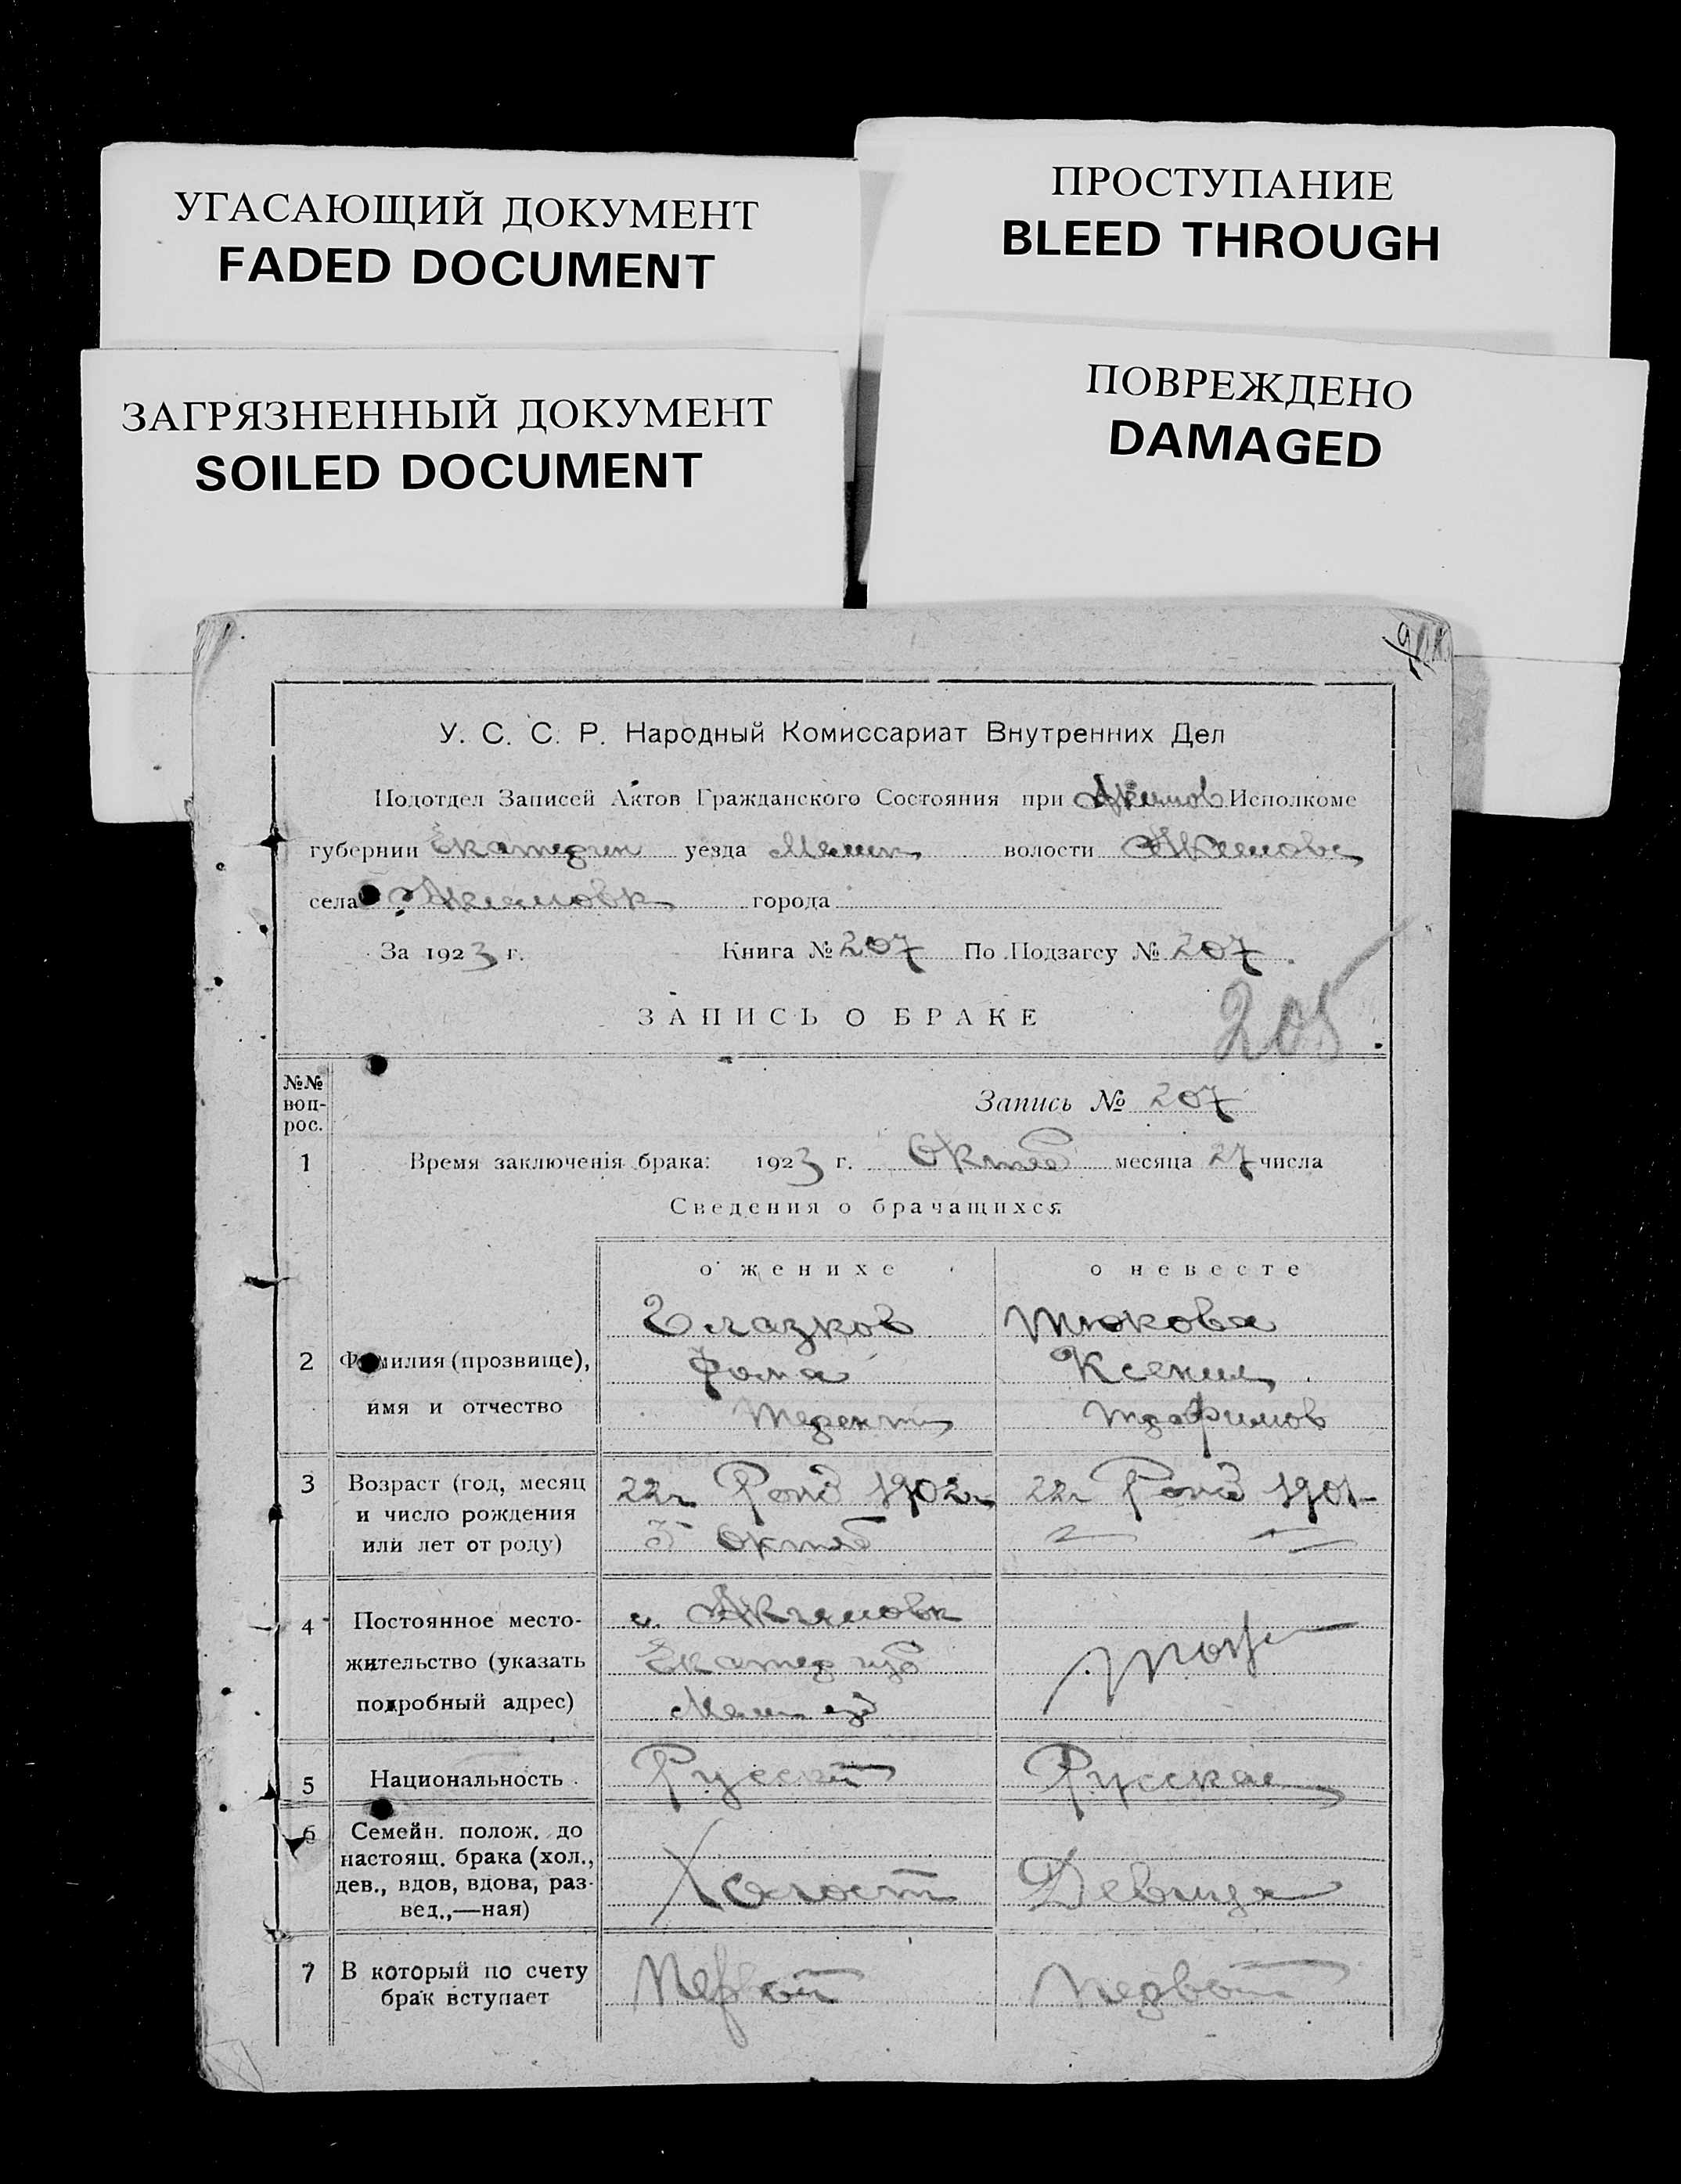 УГАСАЮЩИЙ ДОКУМЕНТ
FADED DOCUMENT
ПРОСТУПАНИЕ
BLEED THROUGH
ЗАГРЯЗНЕННЫЙ ДОКУМЕНТ
SOILED DOCUMENT
ПОВРЕЖДЕНО
DAMAGED
У. С. С. Р. Народный Комиссариат Внутренних Дел
Подотдел Записей Актов Гражданского Состояния при Акимов Исполкоме
губернии Екатерин уезда Мелит волости Акимовс
села Акимовк города
За 1923 г. Книга № 207 По Подзагсу № 207
205
ЗАПИСЬ О БРАКЕ
№№ воп-рос.
Запись № 207
1 Время заключенія брака: 1923 г. Октяб месяца 27 числа
Сведения о брачащихся
о женихе о невесте
Глазков Тюкова
2 Фамилия (прозвище), Фома Ксения
имя и отчество Терент Трофимов
3 Возраст (год, месяц 22 г. Рожд 1902 г. 22 г. Рожд 1901
и число рождения
или лет от роду) Октяб
с. Акимовк
4 Постоянное место-
жительство (указать Екатер губ Тоже
подробный адрес) Мелит уезд
5 Национальность Русский Русская
6 Семейн. полож. до
настоящ. брака (хол.,
дев., вдов, вдова, раз- Холост Девица
вед.,—ная)
7 В который по счету Первый Первый
брак вступает